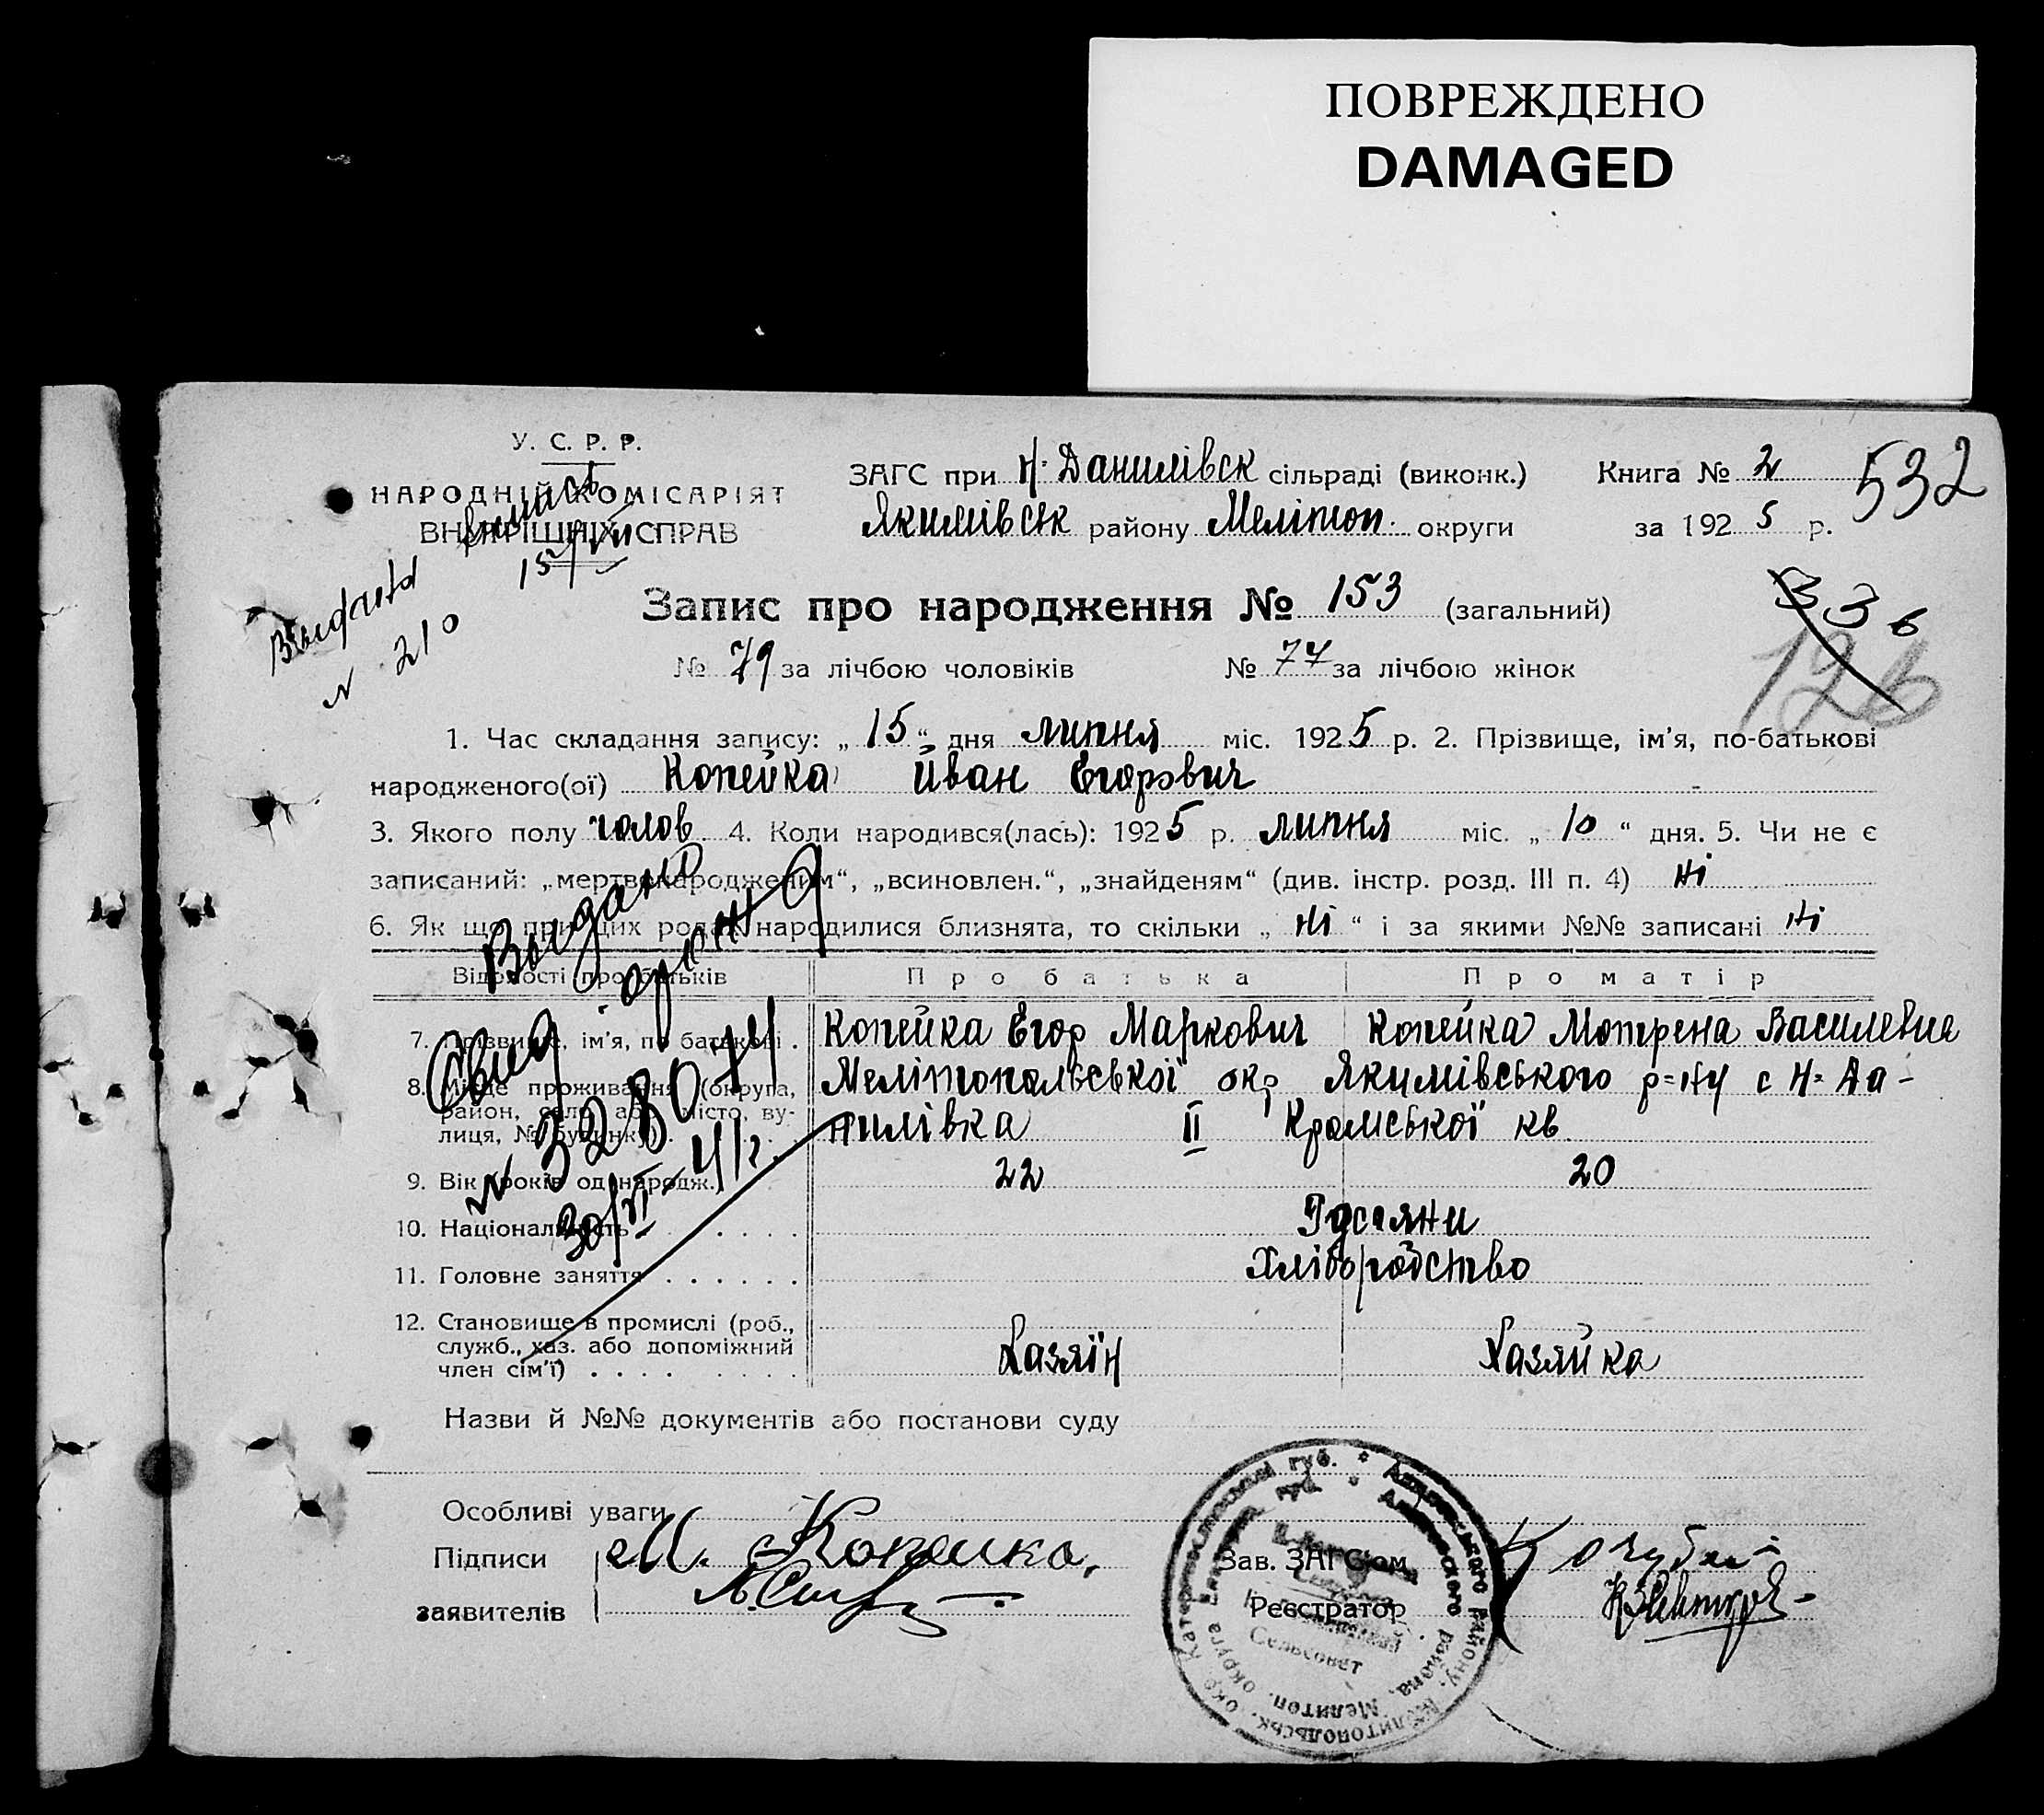 ПОВРЕЖДЕНО
DAMAGED
У. С. Р. Р.
НАРОДНІЙ КОМІСАРІЯТ
ВНУТРІШНІХ СПРАВ
ЗАГС при Н-Данилівск сільраді (виконк.)
Якимівськ району Мелітоп. округи
Книга № 2
за 1925 р.
532
15/VII
№ 210
Запис про народження № 153 (загальний)
336
№ 79 за лічбою чоловіків № 74 за лічбою жінок
126
1. Час складання запису: „ 15 “ дня липня міс. 1925 р. 2. Прізвище, ім’я, по-батькові
народженого(ої) Копейка Иван Егорович
3. Якого полу чолов 4. Коли народився(лась): 1925 р. липня міс. „ 10 “ дня. 5. Чи не є
записаний: „мертвонародженим“, „всиновлен.“, „знайденям“ (див. інстр. розд. III п. 4) ні
6. Як що при цих родах народилися близнята, то скільки „ ні “ і за якими №№ записані ні
Видано
Свид.
№ 328074
30/VI-41г.
Відомості про батьків Про батька Про матір
7. Прізвище, ім’я, по батькові . Копейка Егор Маркович Копейка Мотрена Василевна
8. Місце проживання (округа, район, село, або місто, вулиця, № будинку) . Мелітопольської окр Якимівського р=ну с Н=Да-
нилівка II Кромської кв.
9. Вік (років од народж.) 22 20
10. Національність . . . . Русяни
11. Головне заняття . . . . . . Хліборобство
12. Становище в промислі (роб.,
служб., хаз. або допоміжний
член сім’ї) . . . . . . . . Хазяїн Хазяйка
Назви й №№ документів або постанови суду
Особливі уваги
Підписи М. Копейка,
заявителів
Зав. ЗАГС’ом Кочубей
Реєстратор
Сельсовет